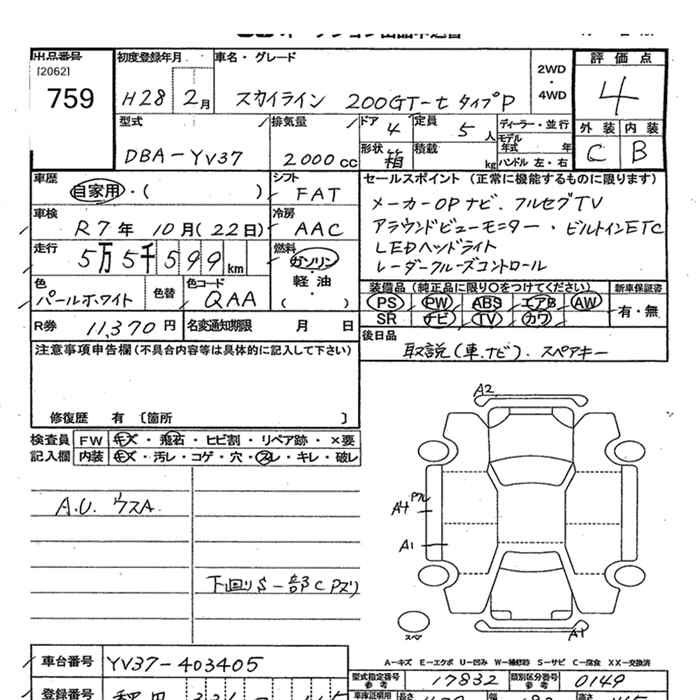 出品番号
[2062]
759
初度登録年月
H28 2月
車名・グレード
スカイライン 200GT-t タイプP
2WD
・
4WD
評価点
4
外装 内装
C B
型式
DBA-YV37
排気量
2000cc
ドア 4
定員 5人
形状 箱
積載 kg
ディーラー・並行
モデル年式 年
ハンドル 左・右
車歴
自家用・( )
シフト
FAT
車検
R7年 10月(22日)
冷房
AAC
走行
5万5千599km
燃料
ガソリン
・
軽油
・
( )
色
パールホワイト
色替
色コード
QAA
R券 11,370円
名変通知期限 月 日
セールスポイント (正常に機能するものに限ります)
メーカーOPナビ、フルセグTV
アラウンドビューモニター・ビルトインETC
LEDヘッドライト
レーダークルーズコントロール
装備品(純正品に限り○をつけてください)
新車保証書
PS PW ABS エアB AW
SR ナビ TV カワ
有・無
後日品
取説(車、ナビ)、スペアキー
注意事項申告欄(不具合内容等は具体的に記入して下さい)
修復歴 有 〔箇所 〕
検査員記入欄
FW キズ・飛石・ヒビ割・リペア跡・×要
内装 キズ・汚レ・コゲ・穴・スレ・キレ・破レ
A.U. ウスA
下回りS 一部C Pズリ
A2
A4
A1
A1
スペア
A-キズ E-エクボ U-凹み W-補修跡 S-サビ C-腐食 XX-交換済
車台番号 YV37-403405
型式指定番号 参考 17832
類別区分番号 参考 0149
登録番号